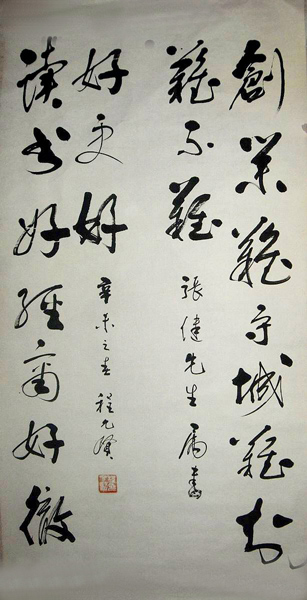 創業難守城難知
難不難
張健先生属書
读书好經商好
好更好
辛未之春 程允賢